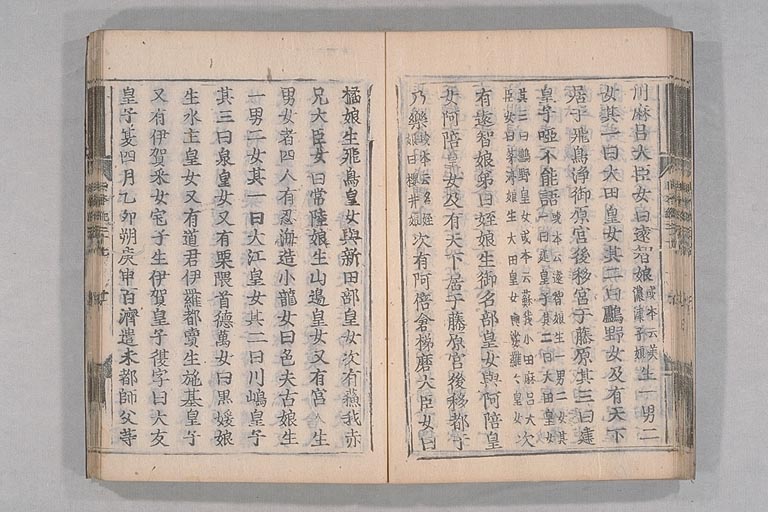 川麻呂大臣女曰遠智娘或本云美濃津子娘生一男二
女其一曰大田皇女其二曰鸕野女及有天下
居于飛鳥淨御原宮後移宮于藤原其三曰建
皇子唖不能語或本云遠智娘生一男二女其一曰建皇子其二曰大田皇女
其三曰鸕野皇女或本云蘇我小田麻呂大臣女曰茅渟娘生大田皇女與娑羅々皇女次
有遠智娘弟曰姪娘生御名部皇女與阿陪皇
女阿陪皇女及有天下居于藤原宮後移都于
乃樂或本云名姪娘曰櫻井娘次有阿倍倉梯磨大臣女曰
橘娘生飛鳥皇女與新田部皇女次有蘇我赤
兄大臣女曰常陸娘生山邊皇女又有宮人生
男女者四人有忍海造小龍女曰色夫古娘生
一男二女其一曰大江皇女其二曰川嶋皇子
其三曰泉皇女又有栗隈首德萬女曰黒媛娘
生水主皇女又有道君伊羅都賣生施基皇子
又有伊賀釆女宅子生伊賀皇子後字曰大友
皇子夏四月乙卯朔庚申百濟遣末都師父等